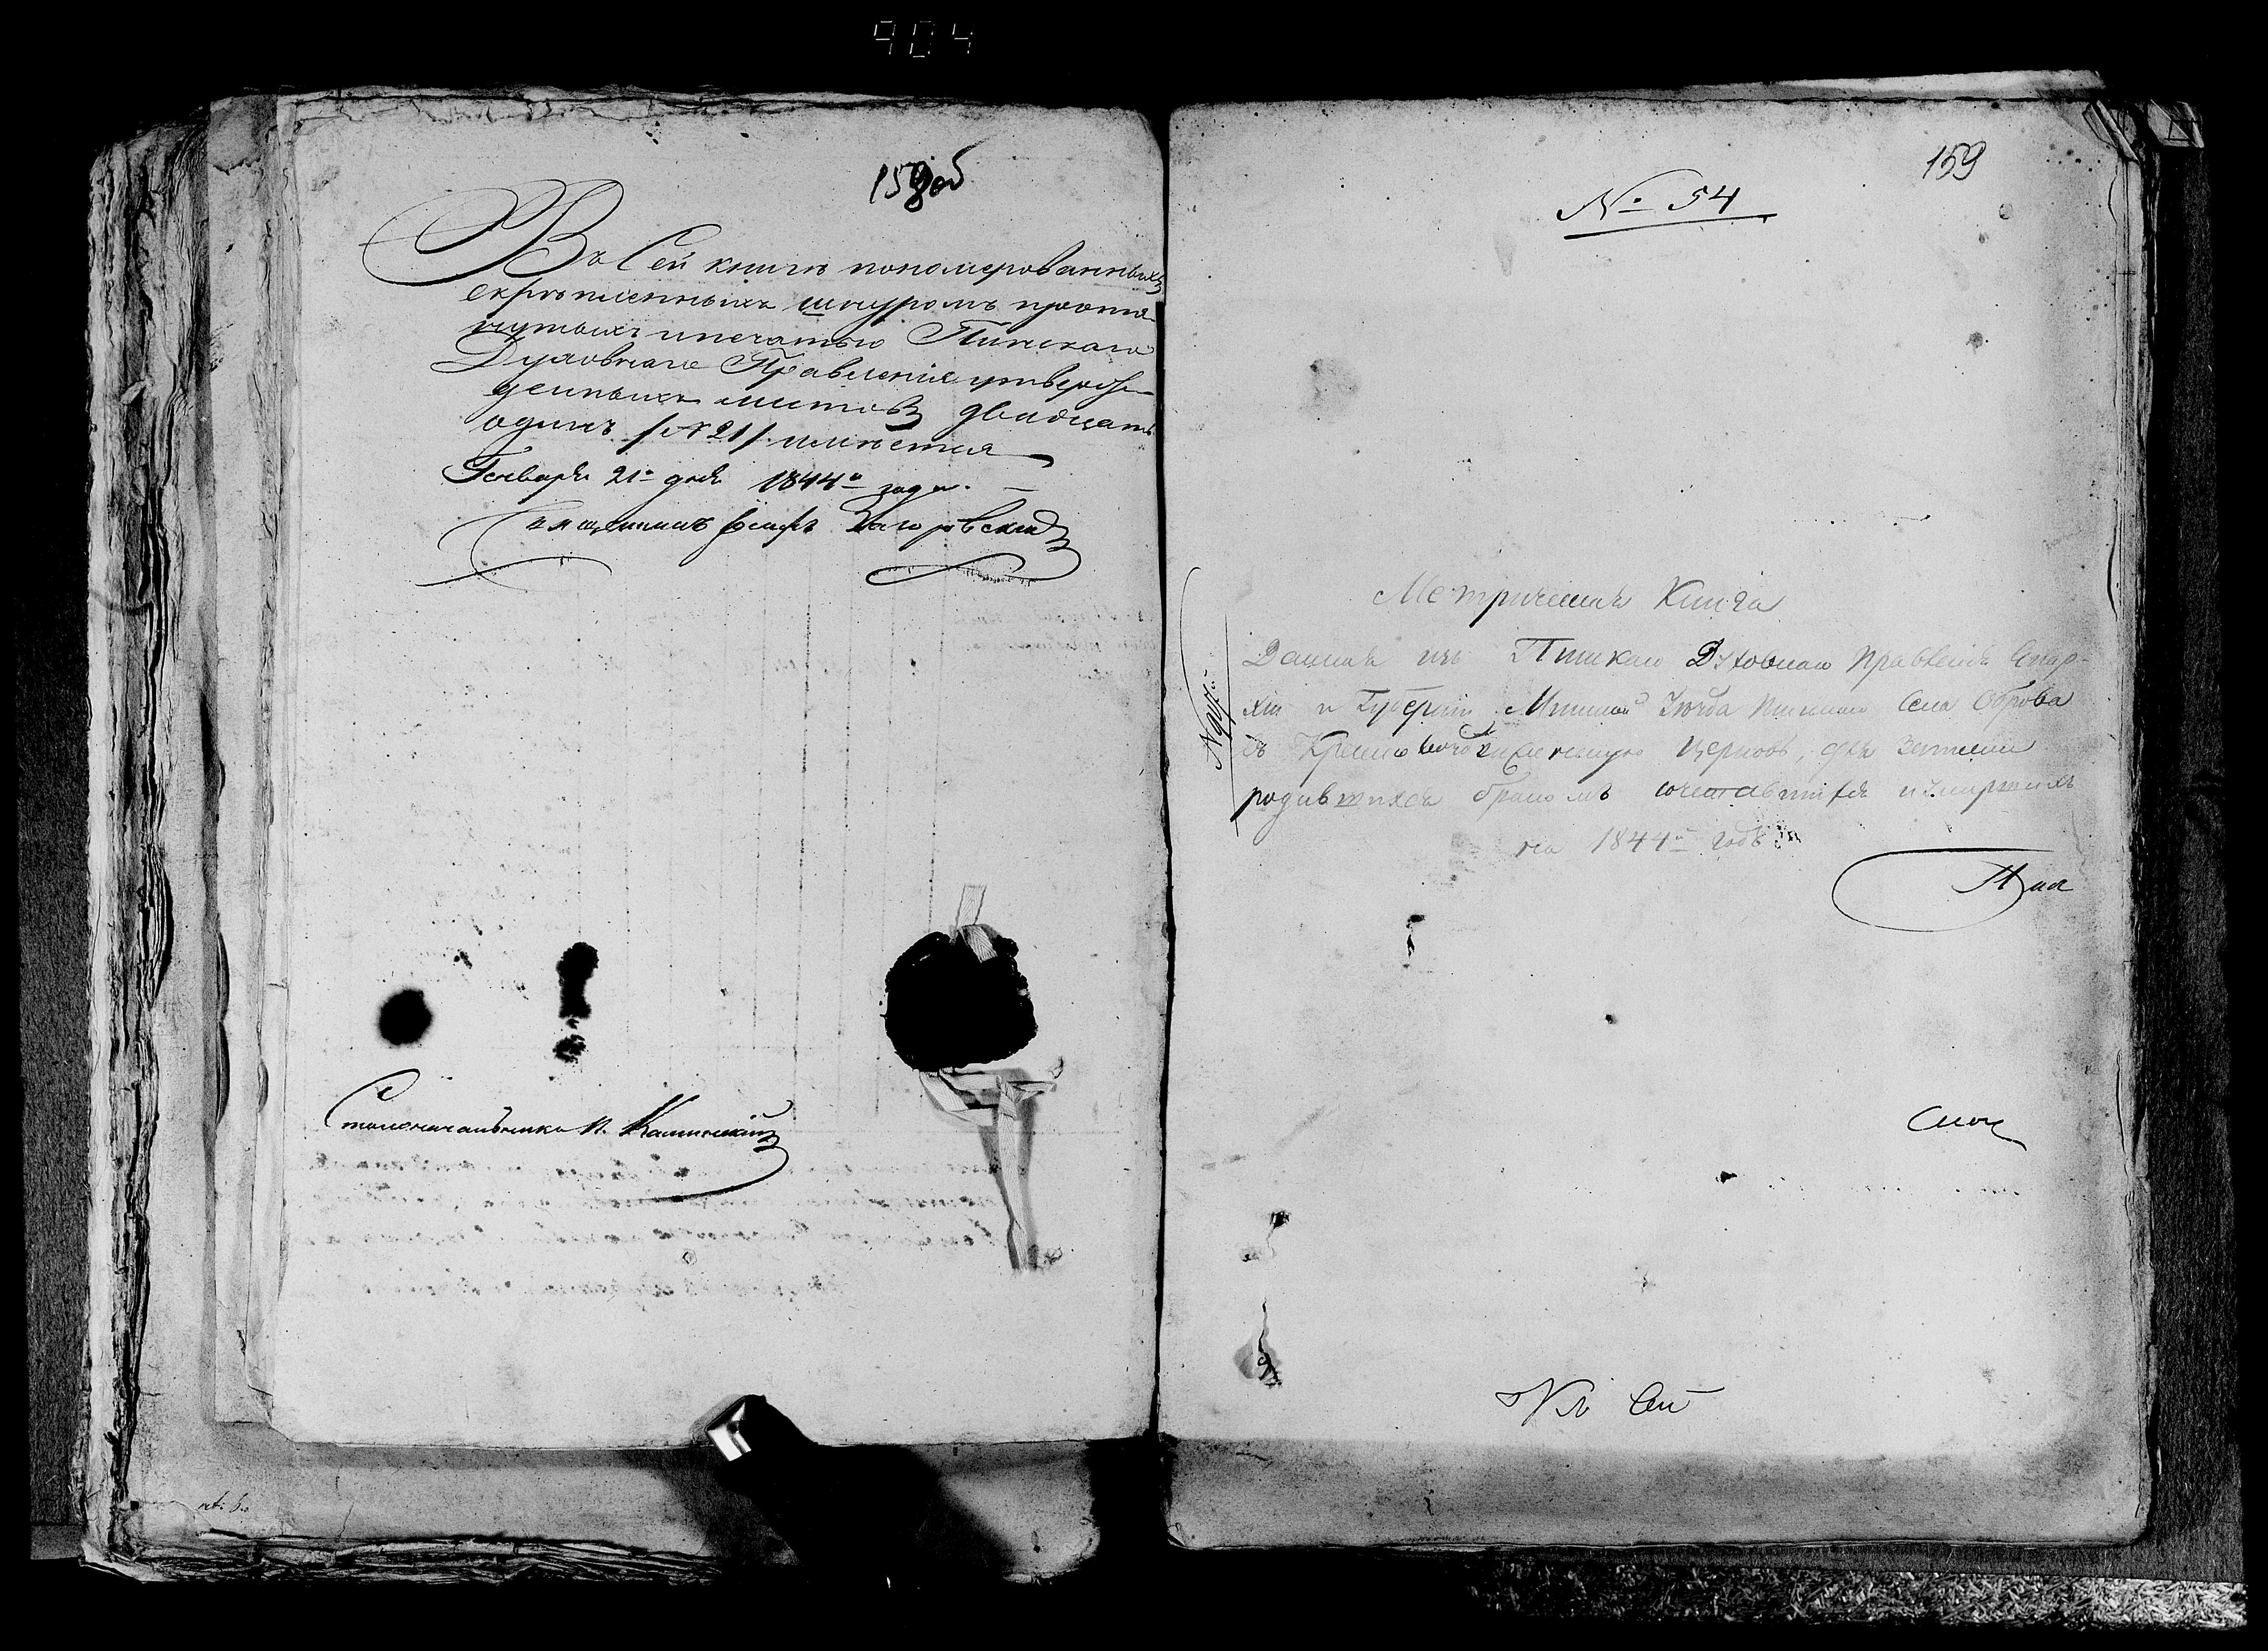 904
158об
Въ Сей книгѣ пономерованныхъ
скрѣпленныхъ шнуромъ протя-
нутыхъ и печатью Пинскаго
Духовнаго Правленія утверж-
денныхъ листовъ двадцать
одинъ /№ 21/ имѣется
Генваря 21го дня 1844го года.
Священникъ Іосифъ Загоровскій
Столоначальникъ П. Калинскій
159
№ 54
Метрическая Книга
Данная изъ Пинскаго Духовнаго Правленія Епар-
хіи и Губерніи Минской Уѣзда Пинскаго Села Оброва
въ Крестовоздвиженскую Церковь, для записи
родившихся бракомъ сочетавшихся и умершихъ
на 1844й годъ